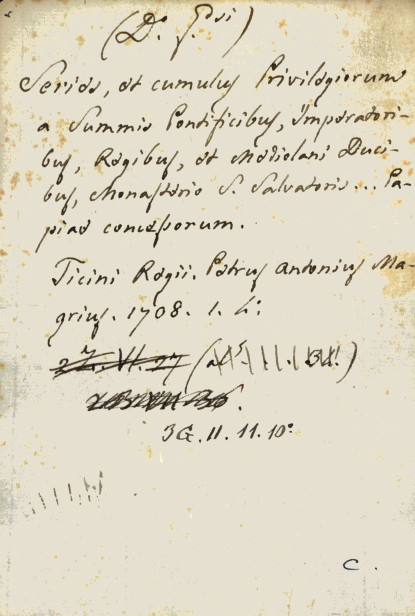 (Do. Gdsi)
Series, et cumulus Privilegiorum
a Summis Pontificibus, Imperatori-
bus, Regibus, et Mediolani Duci-
bus, Monasterio S. Salvatoris... Pa-
piae concessorum.
Ticini Regii. Petrus Antonius Ma-
grius. 1708. 1. L:
27. VI. 27
3G. II. 11. 10:
C.